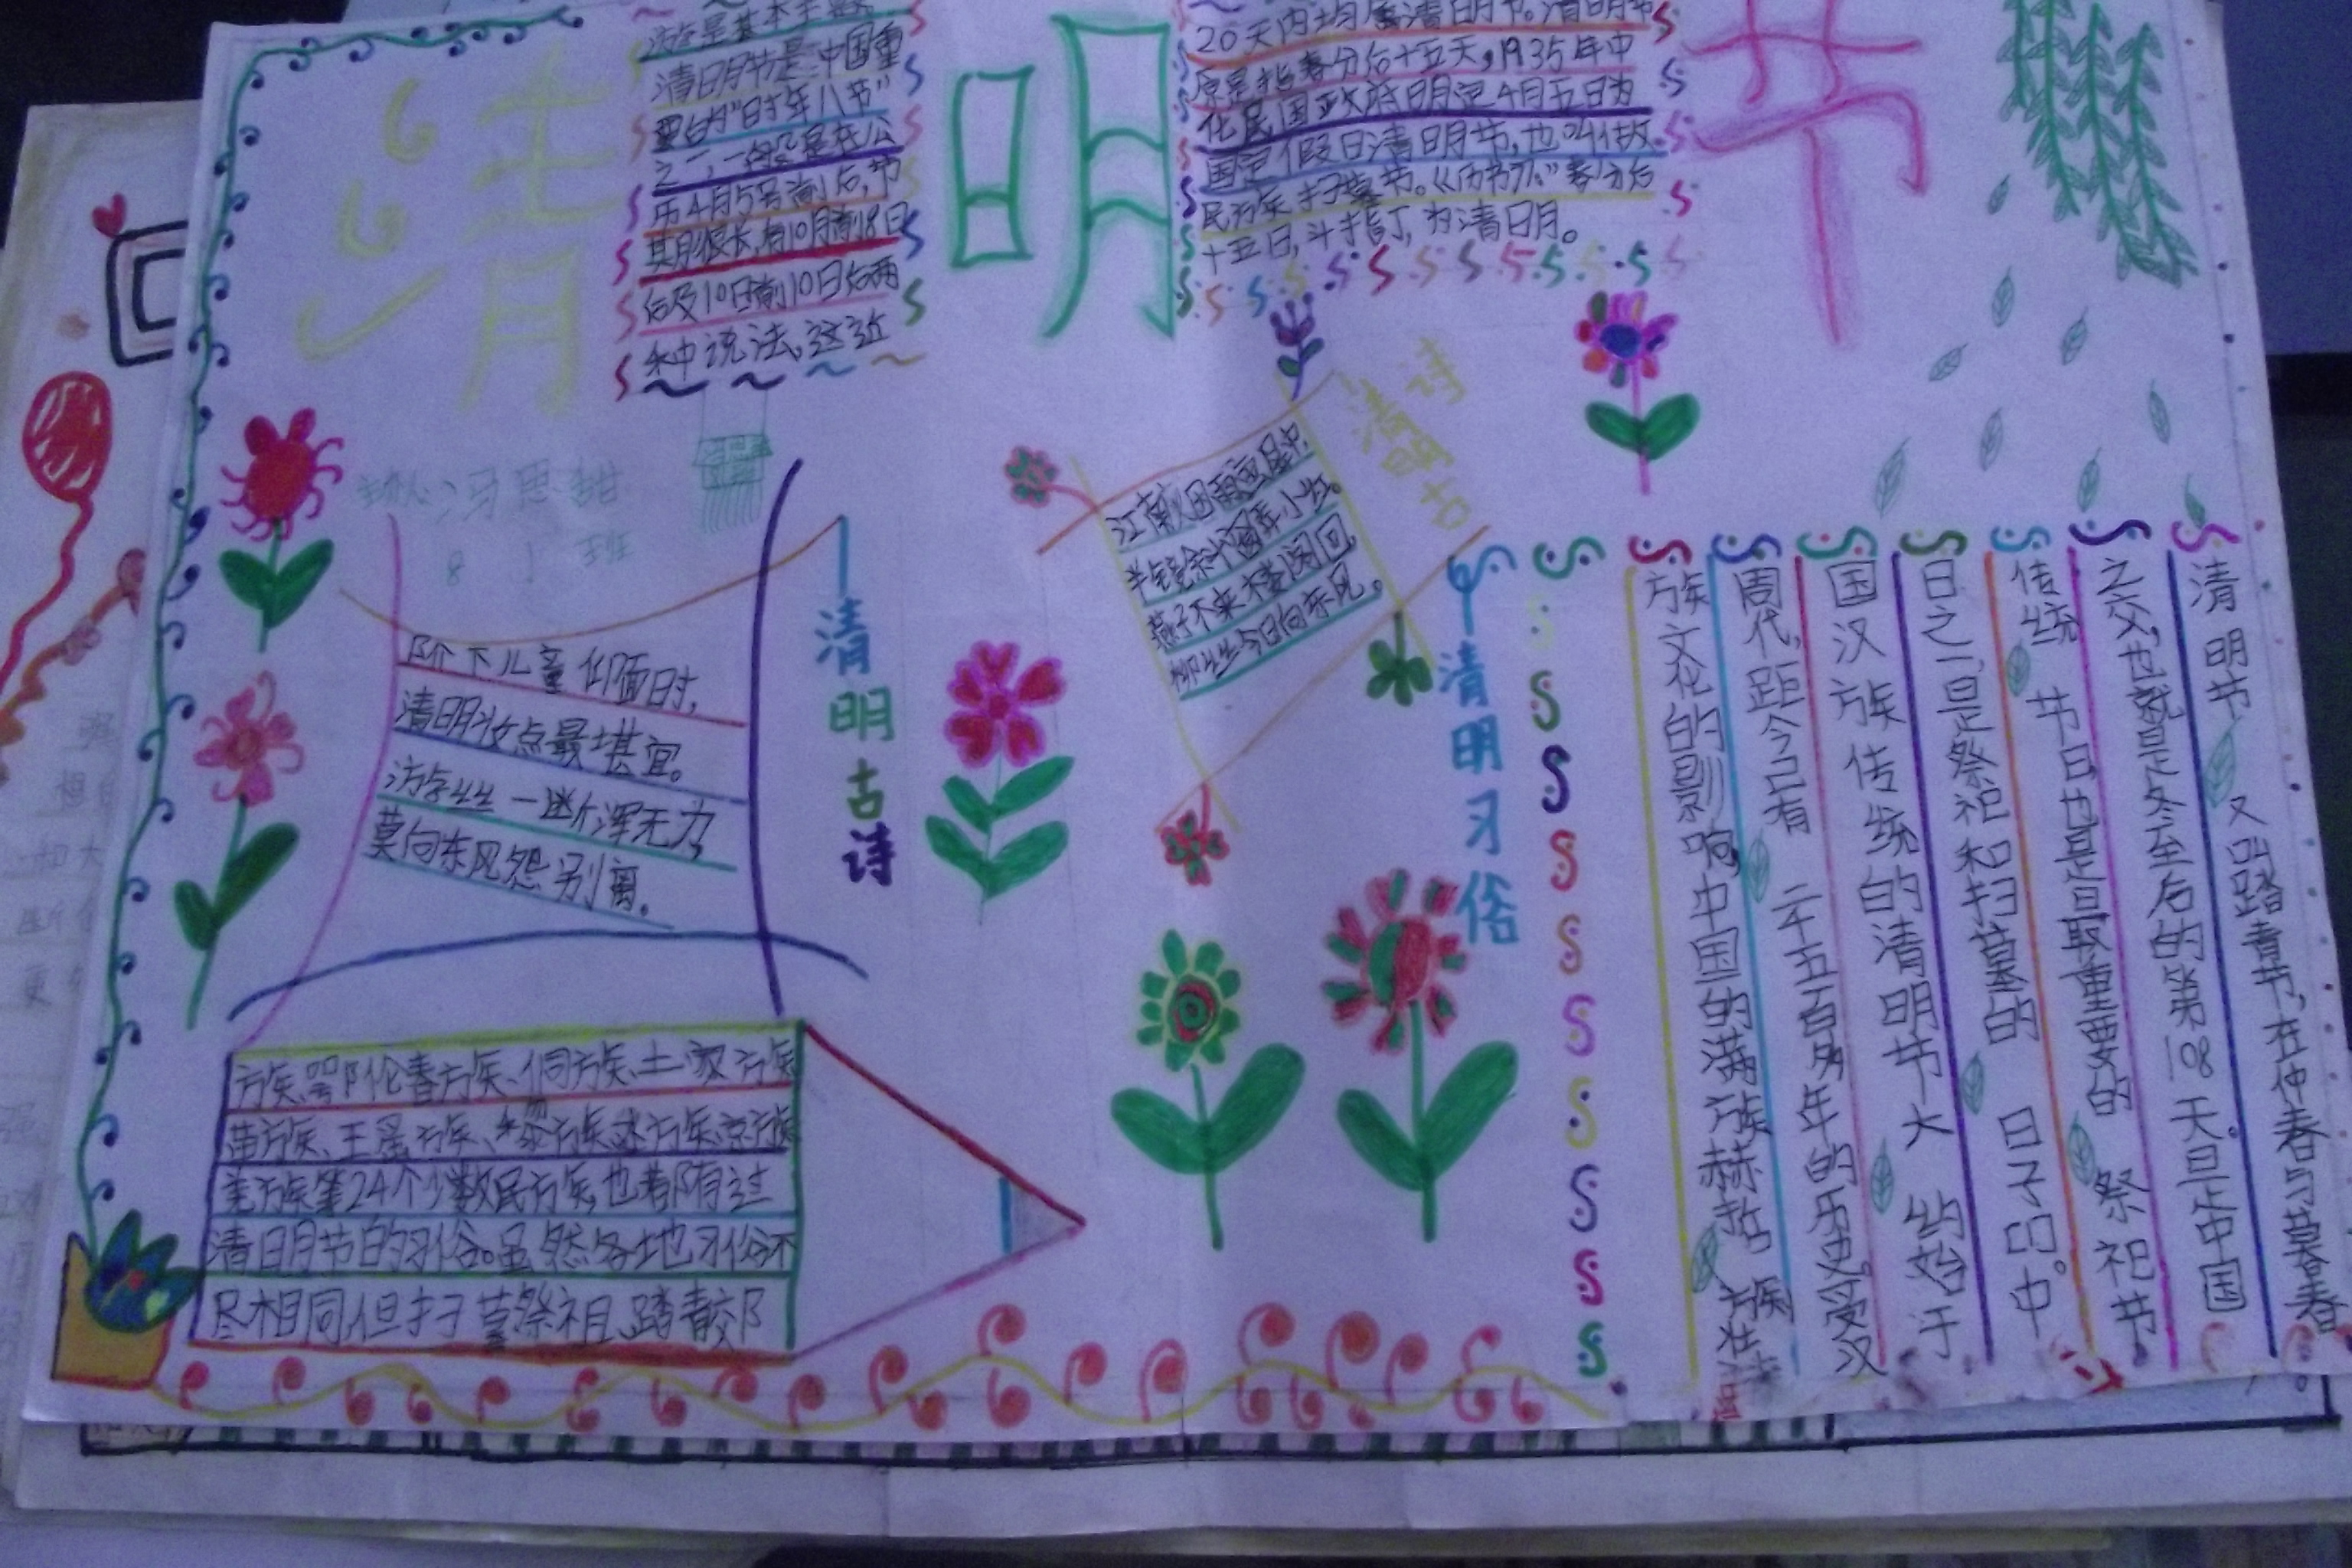 清
明
节
清明节是中国重
要的"时年八节"
之一,一般是在公
历4月5号前后,节
其月很长,有10日前8日
后及10日前10日后两
种说法,这近
20天内均属清明节。清明节
原是指春分后十五天,1935年中
华民国政府明定4月五日为
国定假日清明节,也叫做
民族扫墓节。《历书》:"春分后
十五日,斗指丁,为清明。
冯思甜
8 1 班
清明古诗
阶下儿童仰面时,
清明妆点最堪宜。
游丝一断浑无力,
莫向东风怨别离。
清明古诗
燕子不来楼阁回
柳丝今日向东风。
族、鄂伦春族、侗族、土家族
苗族、瑶族、黎族、水族、京族
羌族等24个少数民族,也都有过
清明节的习俗。虽然各地习俗不
尽相同,但扫墓祭祖、踏青郊
清明习俗
清明节又叫踏青节,在仲春与暮春
之交,也就是冬至后的第108天。是中国
传统节日,也是最重要的祭祀节
日之一,是祭祀和扫墓的日子。中
国汉族传统的清明节大约始于
周代,距今已有二千五百多年的历史。受汉
族文化的影响,中国的满族、赫哲族、壮